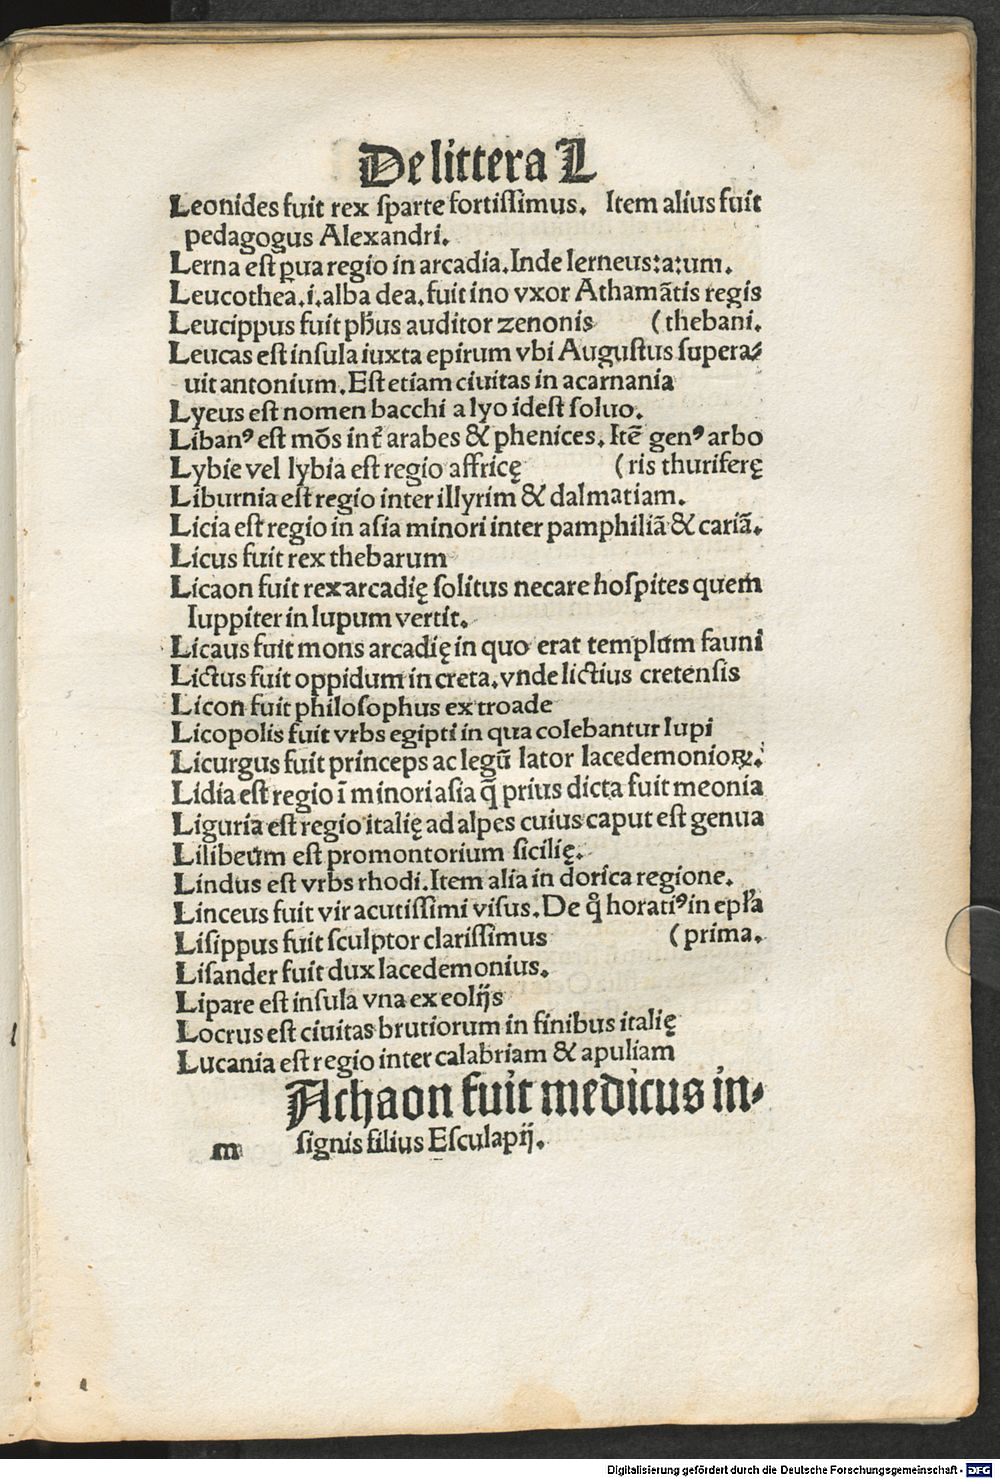 De littera L
Leonides fuit rex ſparte fortiſſimus. Item alius fuit
pedagogus Alexandri.
Lerna eſt ꝑua regio in arcadia. Inde lerneus:a:um.
Leucothea.i.alba dea. fuit ino vxor Athamãtis regis
Leucippus fuit ph̃us auditor zenonis (thebani.
Leucas eſt inſula iuxta epirum vbi Auguſtus ſupera⸗
uit antonium. Eſt etiam ciuitas in acarnania
Lyeus eſt nomen bacchi a lyo ideſt ſoluo.
Libanꝰ eſt mõs inẗ arabes & phenices. Itẽ genꝰ arbo
Lybie vel lybia eſt regio affricę (ris thuriferę
Liburnia eſt regio inter illyrim & dalmatiam.
Licia eſt regio in aſia minori inter pamphiliã & cariã.
Licus fuit rex thebarum
Licaon fuit rex arcadię ſolitus necare hoſpites quem
Iuppiter in lupum vertit.
Licaus fuit mons arcadię in quo erat templum fauni
Lictus fuit oppidum in creta. vnde lictius cretenſis
Licon fuit philoſophus ex troade
Licopolis fuit vrbs egipti in qua colebantur lupi
Licurgus fuit princeps ac legũ lator lacedemonioꝝ.
Lidia eſt regio ĩ minori aſia q̃ prius dicta fuit meonia
Liguria eſt regio italię ad alpes cuius caput eſt genua
Lilibeum eſt promontorium ſicilię.
Lindus eſt vrbs rhodi. Item alia in dorica regione.
Linceus fuit vir acutiſſimi viſus. De qͦ horatiꝰ in epl̃a
Liſippus fuit ſculptor clariſſimus (prima.
Liſander fuit dux lacedemonius.
Lipare eſt inſula vna ex eolijs
Locrus eſt ciuitas brutiorum in finibus italię
Lucania eſt regio inter calabriam & apuliam
Achaon fuit medicus in⸗
m ſignis filius Eſculapij.
Digitalisierung gefördert durch die Deutsche Forschungsgemeinschaft - DFG